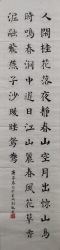 人閒桂花落夜靜春山空月出惊山鳥
時鳴春澗中遲日江山麗春風花草香
泥融飛燕子沙暖睡鴛鴦